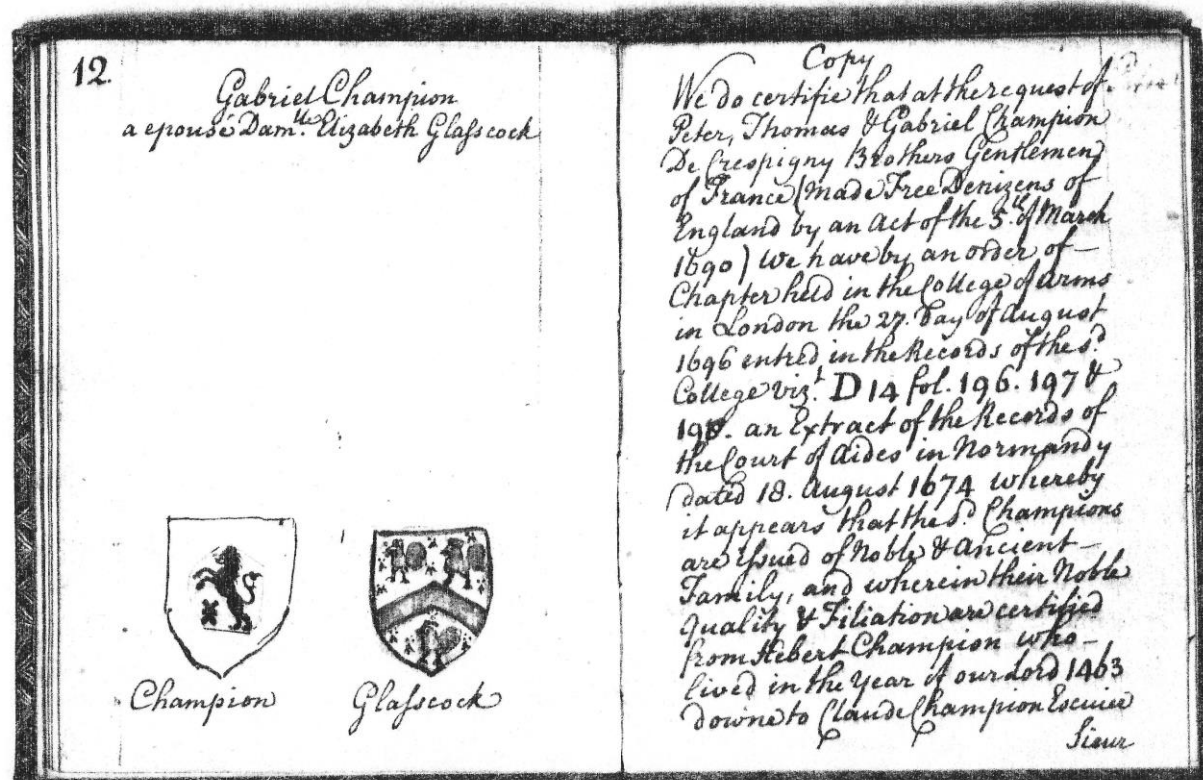 12
Gabriel Champion
a epousé Dam.lle Elizabeth Glasscock
Champion
Glasscock
Copy
We do certifie that at the request of
Peter, Thomas & Gabriel Champion
De Crespigny Brothers Gentlemen
of France (made Free Denizens of
England by an Act of the 5.th of March
1690) We have by an order of
Chapter held in the College of Arms
in London the 27. Day of August
1696 entred in the Records of the s.d
College viz.t D 14 fol. 196. 197 &
198. an Extract of the Records of
the Court of Aides in Normandy
dated 18. August 1674 whereby
it appears that the s.d Champions
are Issued of Noble & Ancient
Family, and wherein their Noble
Quality & Filiation are certified
from Hebert Champion who
lived in the Year of our Lord 1463
downe to Claude Champion Escuier
Sieur